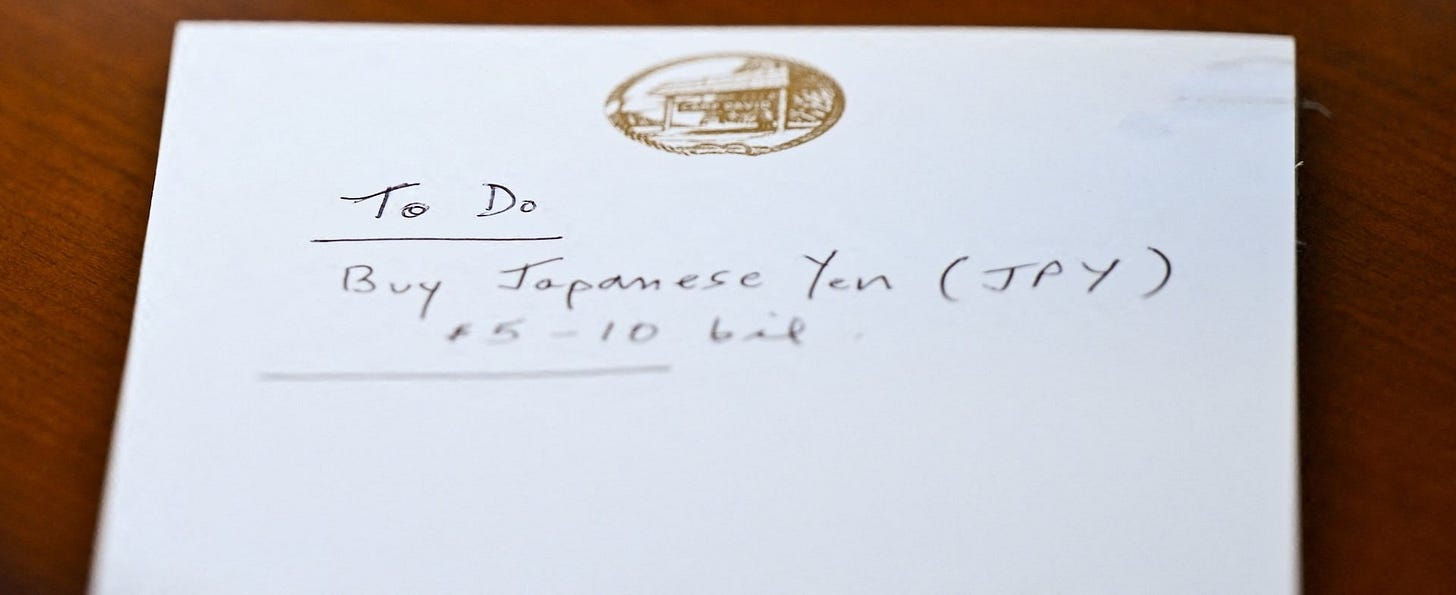 CAMP DAVID
To Do
Buy Japanese Yen (JPY)
$5 - 10 bil.